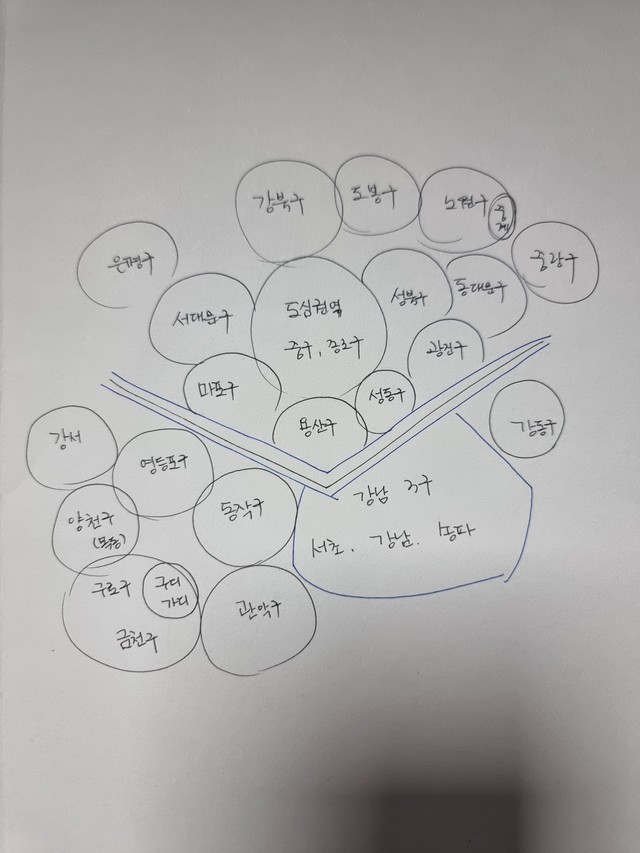 강북구
도봉구
노원구
중계
은평구
중랑구
서대문구
도심권역
중구, 종로구
성북구
동대문구
광진구
마포구
용산구
성동구
강동구
강서
영등포구
양천구
(목동)
동작구
강남 3구
서초. 강남. 송파
구로구
구디
가디
금천구
관악구